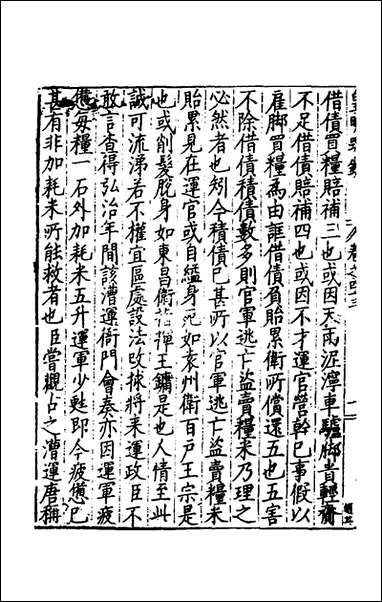 借債買糧賠補三也或因天雨泥濘車驢脚昔輕齎
不足借債賠補四也或因不才運官營幹已事假以
雇脚買糧為由誆借債負貽累衛所償還五也五害
不除借債積債數多則官軍逃亡盜賣糧米乃理之
必然者也矧今積債已甚所以官軍逃亡盜賣糧米
貽累見在運官或自縊身死如袁州衛百戶王宗是
也或削髮脫身如東昌衛指揮王鏽是也人情至此
誠可流涕若不權宜區處設法改採將来運政臣不
敢言查得弘治年間該漕運衙門會奏亦因運軍疲
憊每糧一石外加耗米五升運軍少甦即今疲憊已
甚有非加耗米所能救者也臣嘗觀占之漕運唐稱